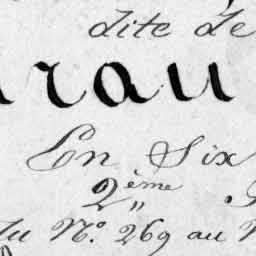 dite de
rau
En Six
2ème
du Nº. 269 au N